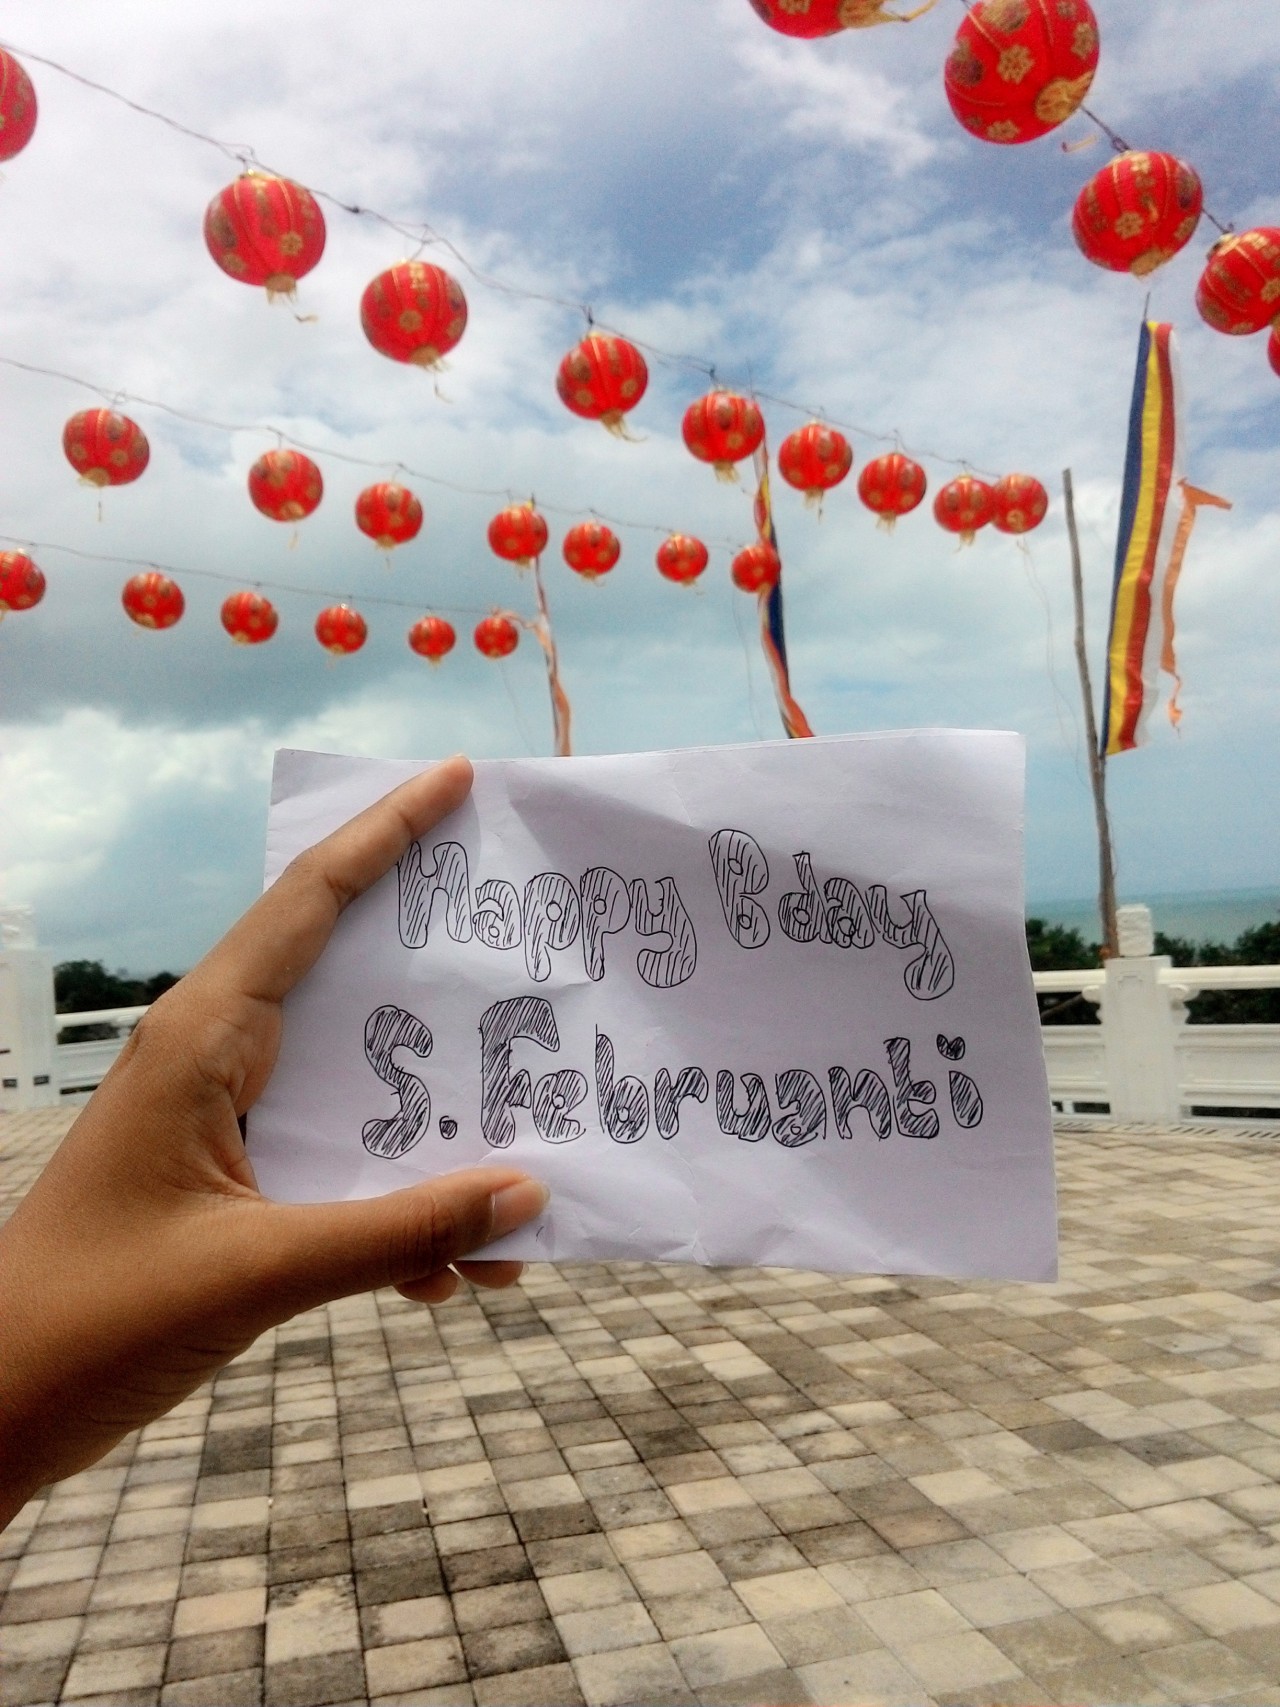 Happy Bday
S. Februanti